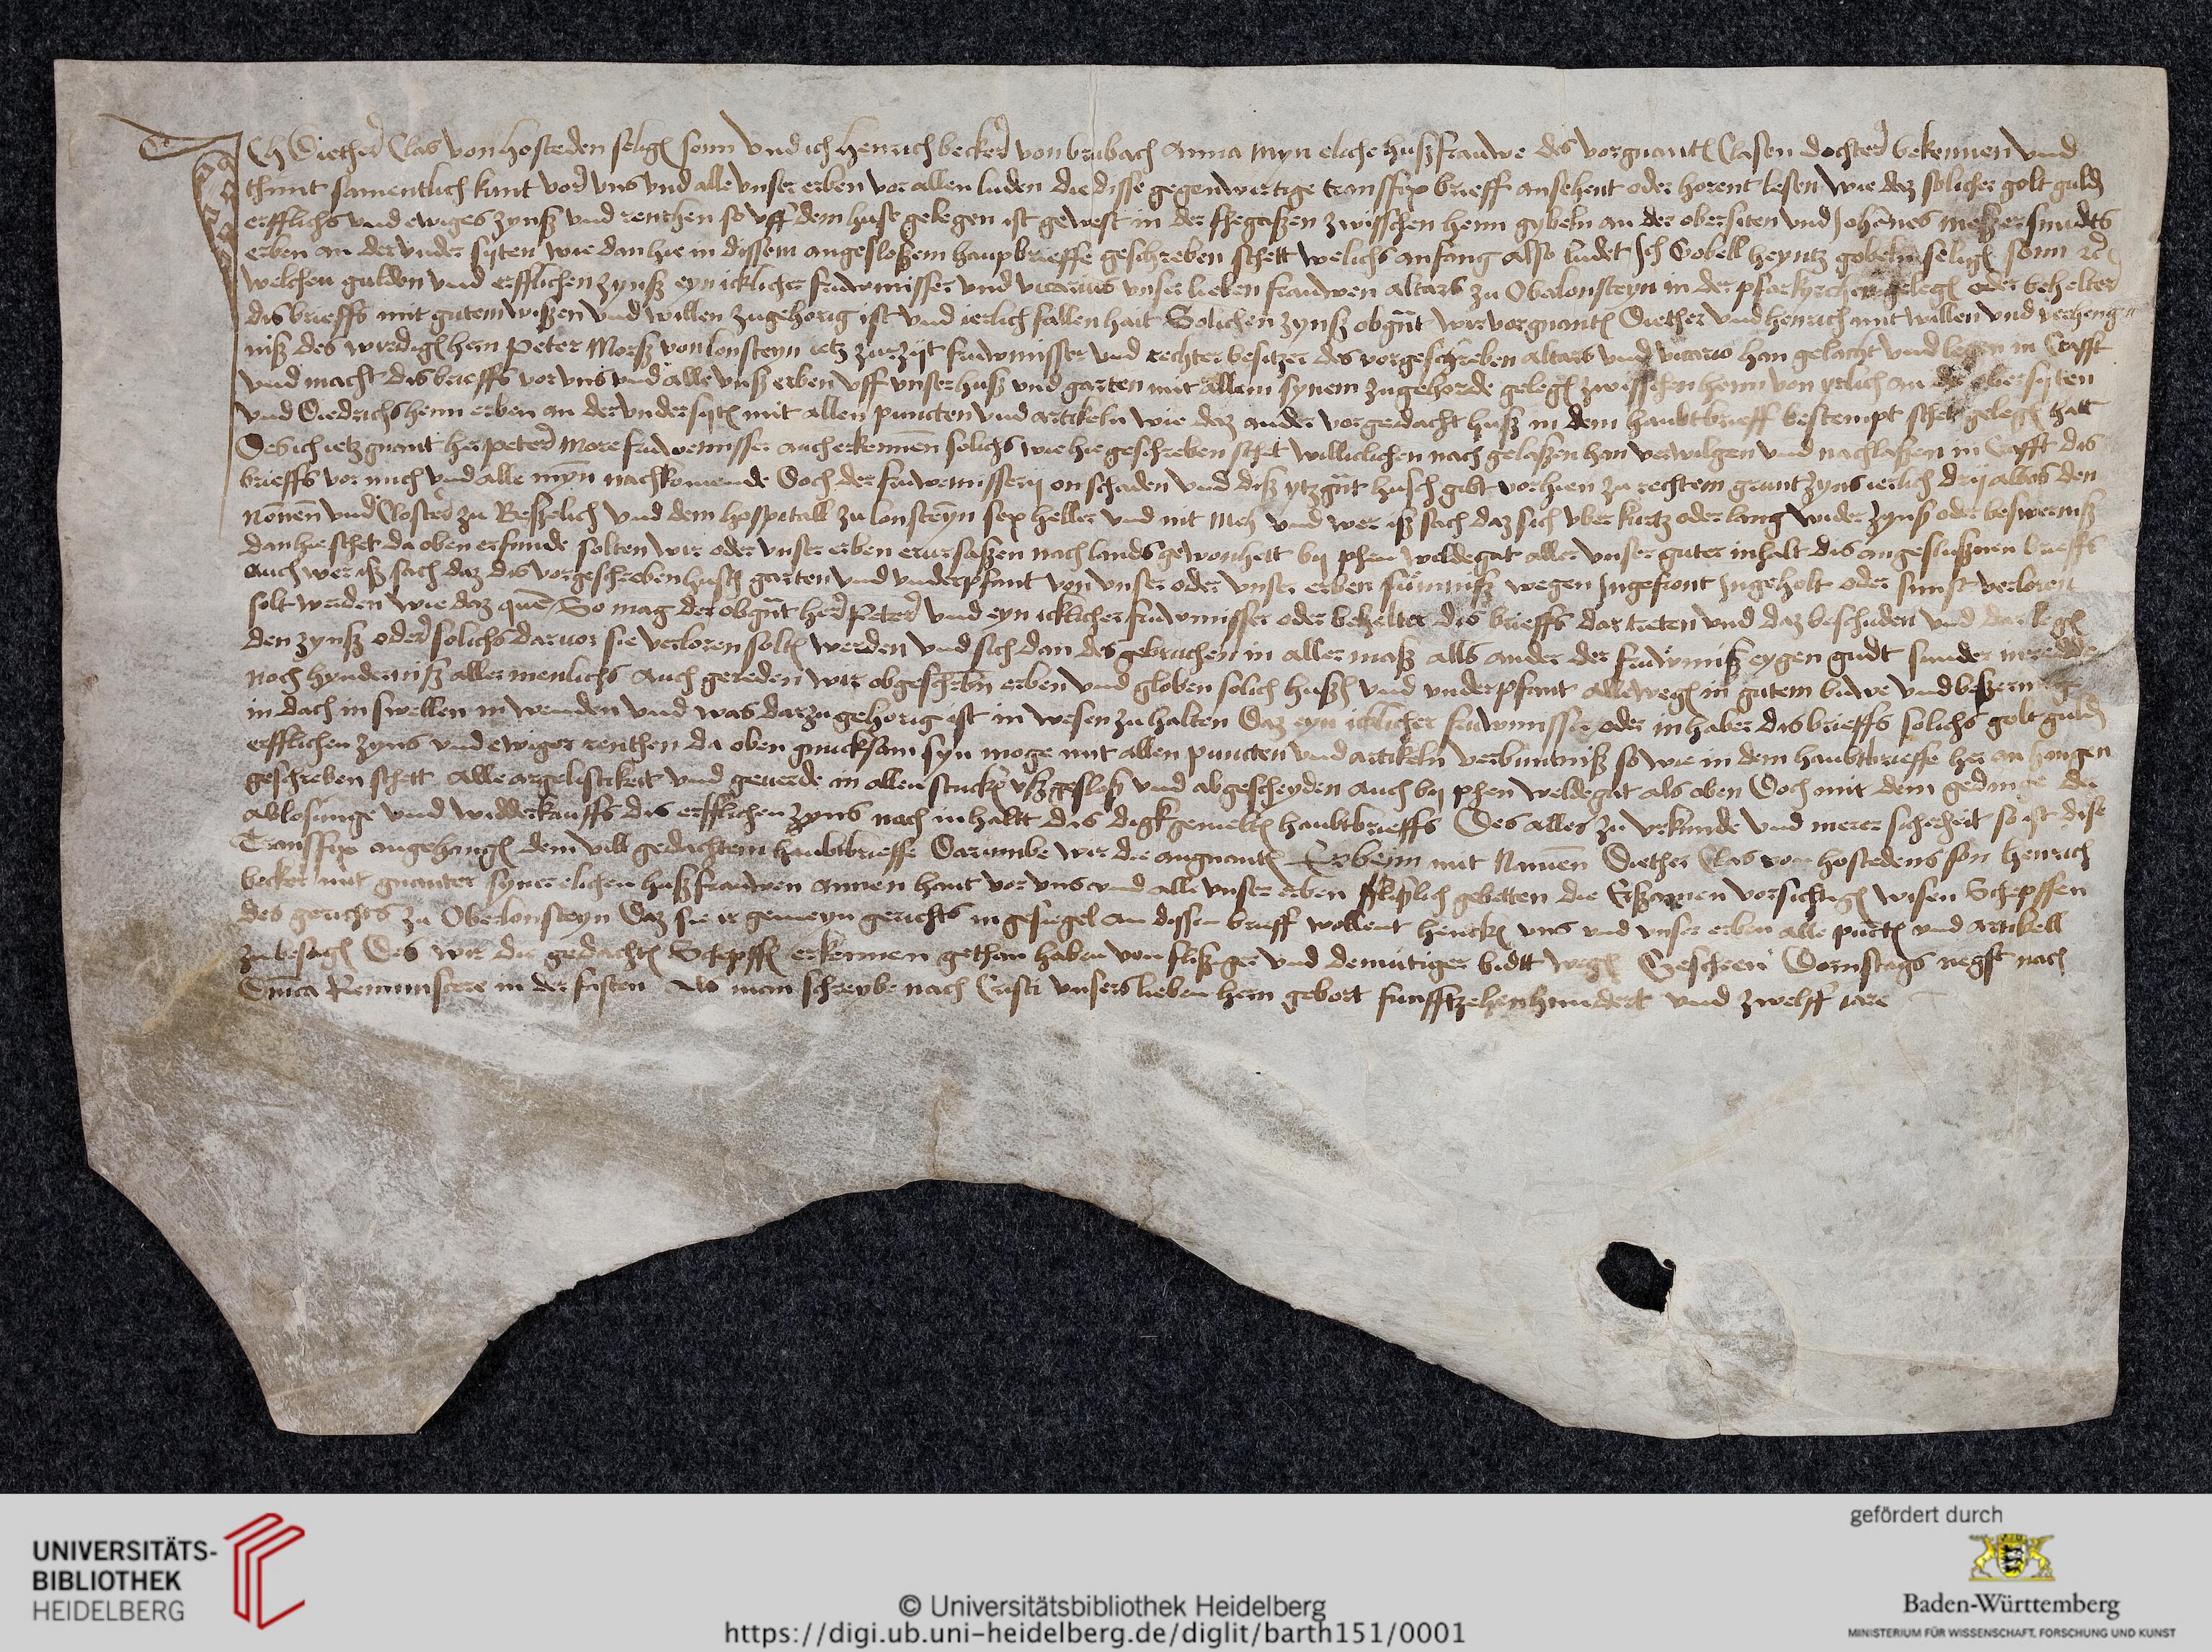 ICh Diether Clas von hosteden selig sonn vnd ich henrich becker von brubach Anna myn eliche hußfrauwe des vorgnant Clasen dochter bekennen vnd
thunt samentlich kunt vor vns vnd alle vnser erben vor allen luden die disse gegenwirtige transfix brieff ansehent oder horent lesen wie daz solicher golt guld
erfflichs vnd ewiges zynß vnd renthen so vff dem huse gelegen ist gewest in der gaßen zwisschen henn gybeln an der obersiten vnd Johannes meßersmidts
erben an der vnder syten wie dan hie in dissem angesloßem haupbrieffe geschreben schett welichs anfang also ludet Ich Gobell heyntz gobeln selig sonn
welchen gulden vnd erfflichen zynß eyn icklicher fruwmisser vnd vicarius vnser lieben frauwen altars zu Obalonsteyn in der pfarkyrchen gelegen oder behelter
dis brieffs mit gutem wißen vnd willen zugehorig ist vnd ierlich fallen hait Solichen zynß obgnt wir vorgnanten Diether vnd henrich mit willen vnd verheng
niß des wirdigen hern Peter Morß von lonsteyn ietz zurzijt fruwmisser vnd rechter besitzer des vorgeschreben altars vnd vicario han gelacht vnd legen in Crafft
vnd macht dis brieffs vor vns vnd alle vnß erben vff vnser huß vnd garten mit allem synem zugehorde gelegen zwisschen henn von an der obersyten
vnd Diedrichs henn erben an der vndersyten mit allen puncten vnd artikeln wie daz ander vorgedacht huß in dem haubtbrieff bestempt schet gelegen hatt
Des ich ietz gnant her peter More fruwemisser auch erkennen solichs wie hie geschreben schet williclichen nach gelaßen han verwilgen vnd nachlaßen in Crafft dis
brieffs vor mich vnd alle myn nachkomende Doch der fruwemissery on schaden vnd diß ytzgnt husch gibt vorhien zu rechtem gruntzyns ierlich drij albos den
Nonnen vnd Closter zu Beßelich vnd dem hospitall zu lonsteyn sex heller vnd nit meh vnd wer iß sach daz sich vber kurtz oder lang wider zynß oder beswerniß
dan hie schet da oben erfunde solten wir oder vnser erben ersaßen nach lands gewonheit by phen weldegut aller vnser guter inhalt dis angesloßnen brieffs
auch wer iß sach daz dis vorgeschreben husch garten vnd vnderpfant von vnser oder vnser erben sumniß wegen Ingefront Ingeholt oder sunst verloren
solt werden wie daz quem So mag der obgnt her Peter vnd eyn icklicher fruwmisser oder behelter dis brieffs dar treten vnd daz beschuden vnd dar legen
den zynß oder solichs daruor sie verloren solten werden vnd sich dan des gebruchen in aller maß alls ander der fruwmiß eygen gudt sunder inredde
noch hynderniß allermenlichs Auch gereden wir obgeschrebn erben vnd globen solich huß vnd vnderpfant allewegen in gutem buwe vnd beßerung
in dach in swellen in wenden vnd was darzu gehorig ist in wesen zu halten Daz eyn icklicher fruwmisser oder inhaber dis brieffs solichs golt guld
erfflichen zyns vnd ewiger renthen da oben gnucksam syn moge mit allen puncten vnd artikeln verbuntniß so wie in dem haubtbrieffe her an hangen
geschreben schett Alle argelistikeit vnd geuerde in allen stucken vßgesloß vnd abgescheyden auch by phen weldegut als oben Doch mit dem gedinge der
ablosunge vnd widderkauffs dis erfflichen zyns nach inhaltt des digkgemelten haubtbrieffs Des alles zu vrkunde vnd merer sicherheit so ist dise
Transfix angehangen dem vill gedachtem haubtbrieffe Darumbe wir die angnanten Erbenn mit Namen Diether Clas von hostedens son henrich
becker mit gnanter syner elichen hußfrauwen Annen hant vor vns vnd alle vnser erben fleißlich gebetten die Erßamen vorsichtigen wisen Schepffen
des gerichts zu Oberlonsteyn Daz sie ir gemeyn gerichts ingesiegel an dissen brieff wollent hencken vns vnd vnser erben alle puncten vnd artikell
zu besagen Des wir die gedachten Schepffen erkennen gethan haben von flißiger vnd demutiger bidtt wegen Geschreen Dornstags negst nach
Dnica Reminiscere in der fasten Als man schreybe nach Cristi vnsers lieben hern gebort funfftzehenhundert vnd zwelff iare
UNIVERSITÄTS-
BIBLIOTHEK
HEIDELBERG
© Universitätsbibliothek Heidelberg
https://digi.ub.uni-heidelberg.de/diglit/barth151/0001
gefördert durch
Baden-Württemberg
MINISTERIUM FÜR WISSENSCHAFT, FORSCHUNG UND KUNST